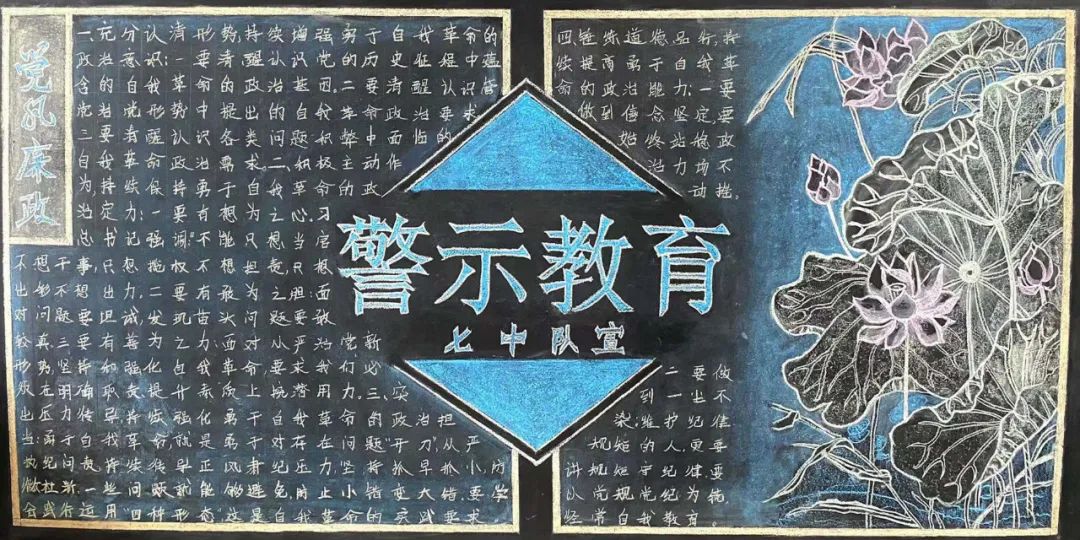 党风廉政
一、充分认清形势持续增强勇于自我革命的
政治意识:一要清醒认识党的历史征程中蕴
含的自我革命的政治基因;二要清醒认识管
党治党形势中提出的自我革命政治要求
三要清醒认识各类问题积弊中面临的
自我革命政治需求。二、积极主动作
为持续保持勇于自我革命的政
治定力:一要有想为之心,习
总书记强调"不能只想当官
不想干事,只想揽权不想担责,只想
出彩不想出力,二要有敢为之胆:面
对问题要坦诚,发现苗头问题要敢
较真三要有善为之力:面对从严治党新
形势坚持和强化自我革命要求我们必
须在明确职责,提升素质上挠常用力。三、突
出压力传导,持续强化勇于自我革命的政治担
当:勇于自我革命就是勇于对存在问题"开刀",从严
执纪问责持续传导正风肃纪压力,坚持抓早抓小,防
微杜渐,一些问题就能够避免,防止小错变大错,要学
会践行运用"四种形态"这是自我革命的实践要求。
警示教育
七中队宣
四、锤炼道德品行,持
续提高勇于自我革
命的政治能力:一要
做到信念坚定要
始终站稳政
治力场不
动摇。
二要做
到一尘不
染,维护纪律
规矩的人,更要
讲规矩守纪律要
以党规党纪为镜
经常自我教育。